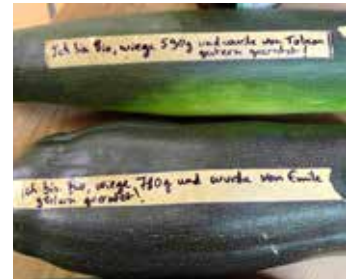 Ich bin Bio, wiege 590g und wurde von Tobias
gestern geerntet!
Ich bin Bio, wiege 710g und wurde von Emilie
gestern geerntet!